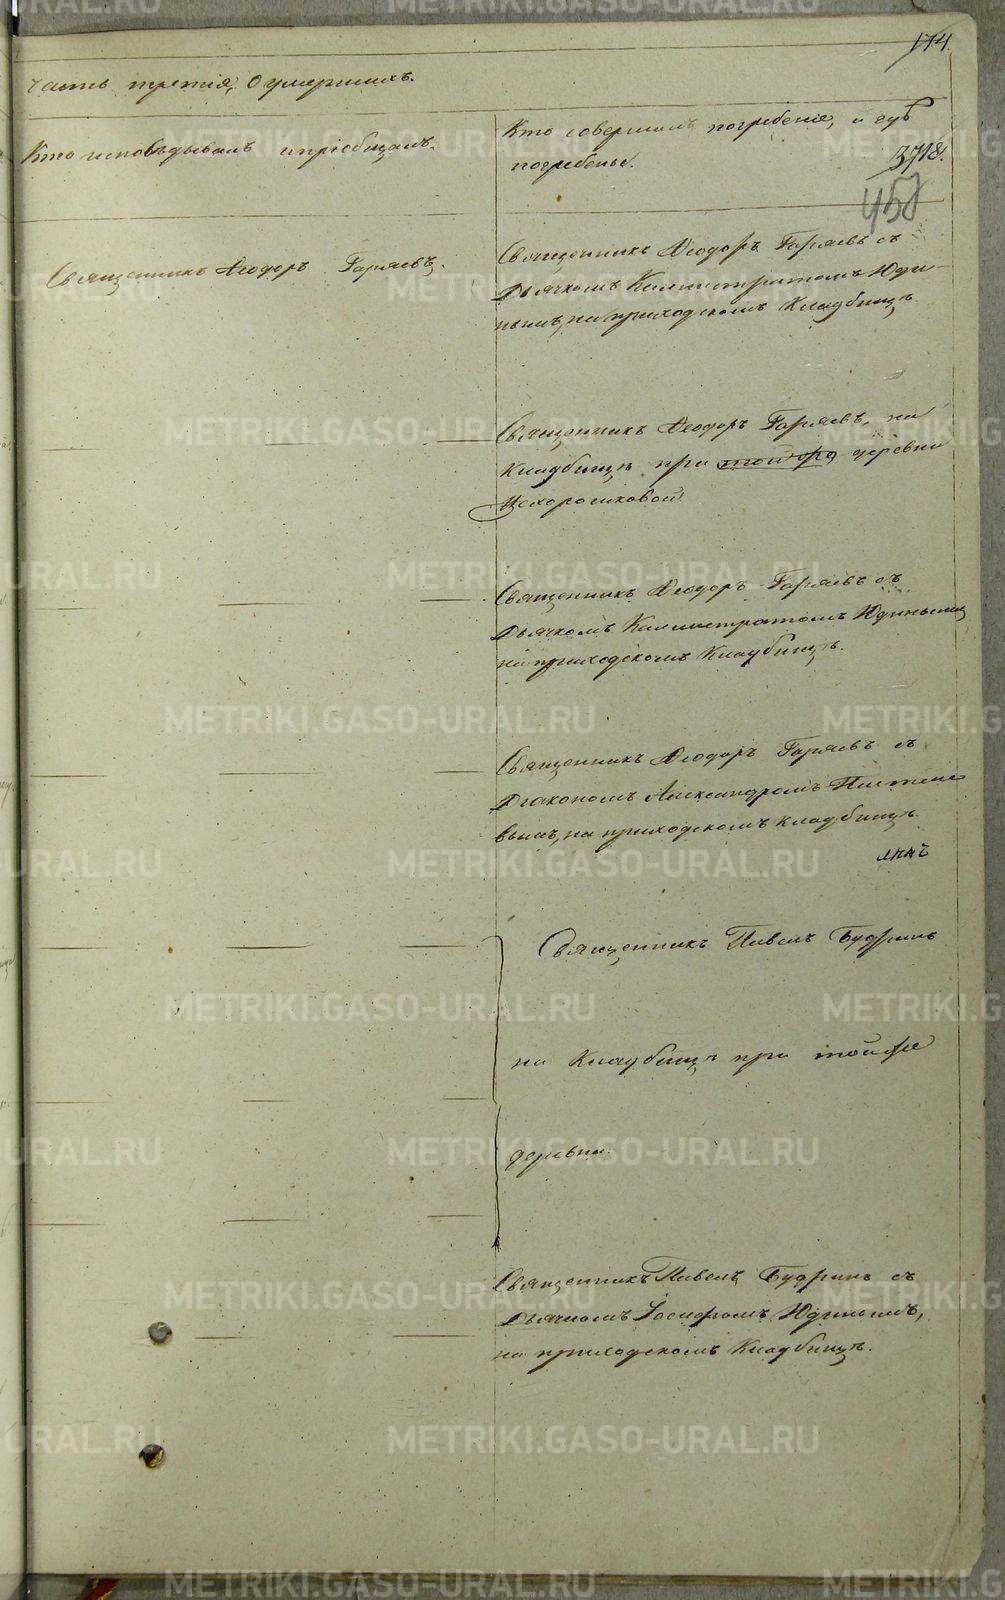 174
Часть третія, О умершихъ.
Кто исповѣдывалъ и пріобщалъ.
Кто совершалъ погребеніе, и гдѣ
погребены.
3718.
458
Священникъ Ѳеодоръ Горяевъ.
Священникъ Ѳеодоръ Горяевъ съ
Дьячкомъ Каллистратомъ Юди-
нымъ, на приходскомъ Кладбищѣ
Священникъ Ѳеодоръ Горяевъ, на
Кладбищѣ при той же деревни
Священникъ Ѳеодоръ Горяевъ съ
Дьячкомъ Каллистратомъ Юдинымъ,
на приходскомъ Кладбищѣ.
Священникъ Ѳеодоръ Горяевъ съ
Діакономъ Александромъ
вымъ, на приходскомъ кладбищѣ.
Священникъ Павелъ Будринъ
на Кладбищѣ при той же
деревни.
Священникъ Павелъ Будринъ съ
Дьячкомъ Іосифомъ Юдинымъ,
на приходскомъ Кладбищѣ.
METRIKI.GASO-URAL.RU